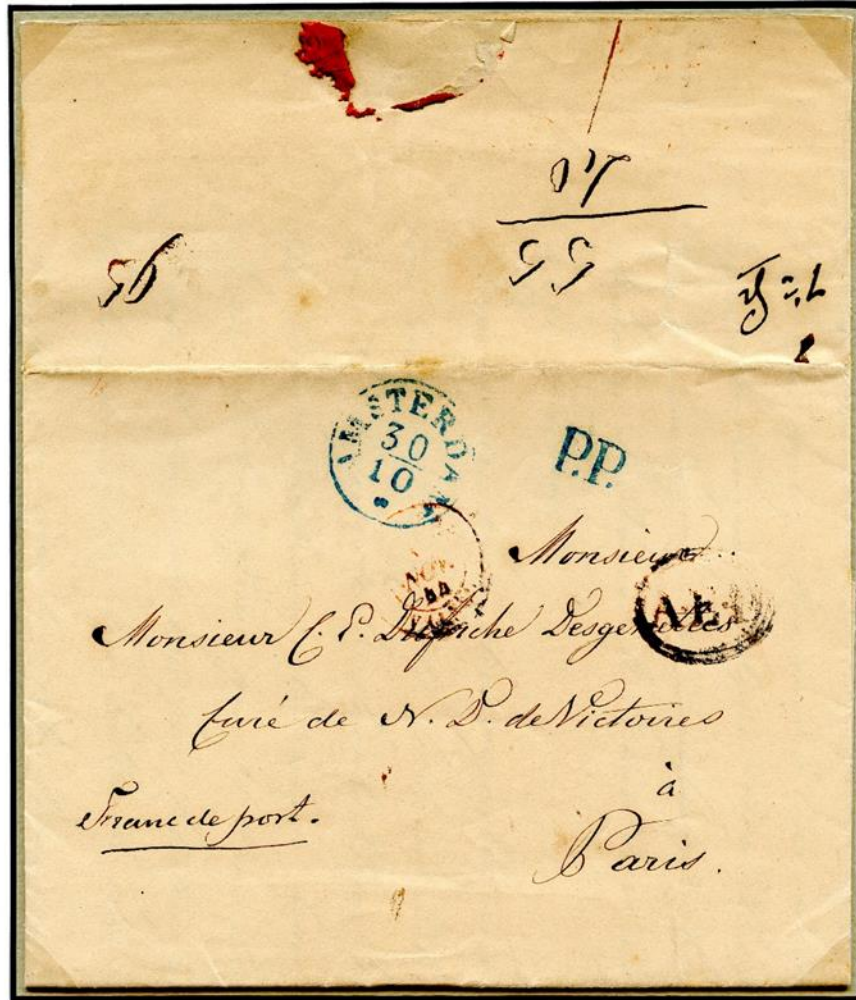 40
55
95
AMSTERDAM
30
10
P.P.
NOV.
44
Monsieur
A.E.D.
Monsieur C. E. Dufriche Desgenettes
Curé de N. D. de Victoires
à
Franc de port.
Paris.